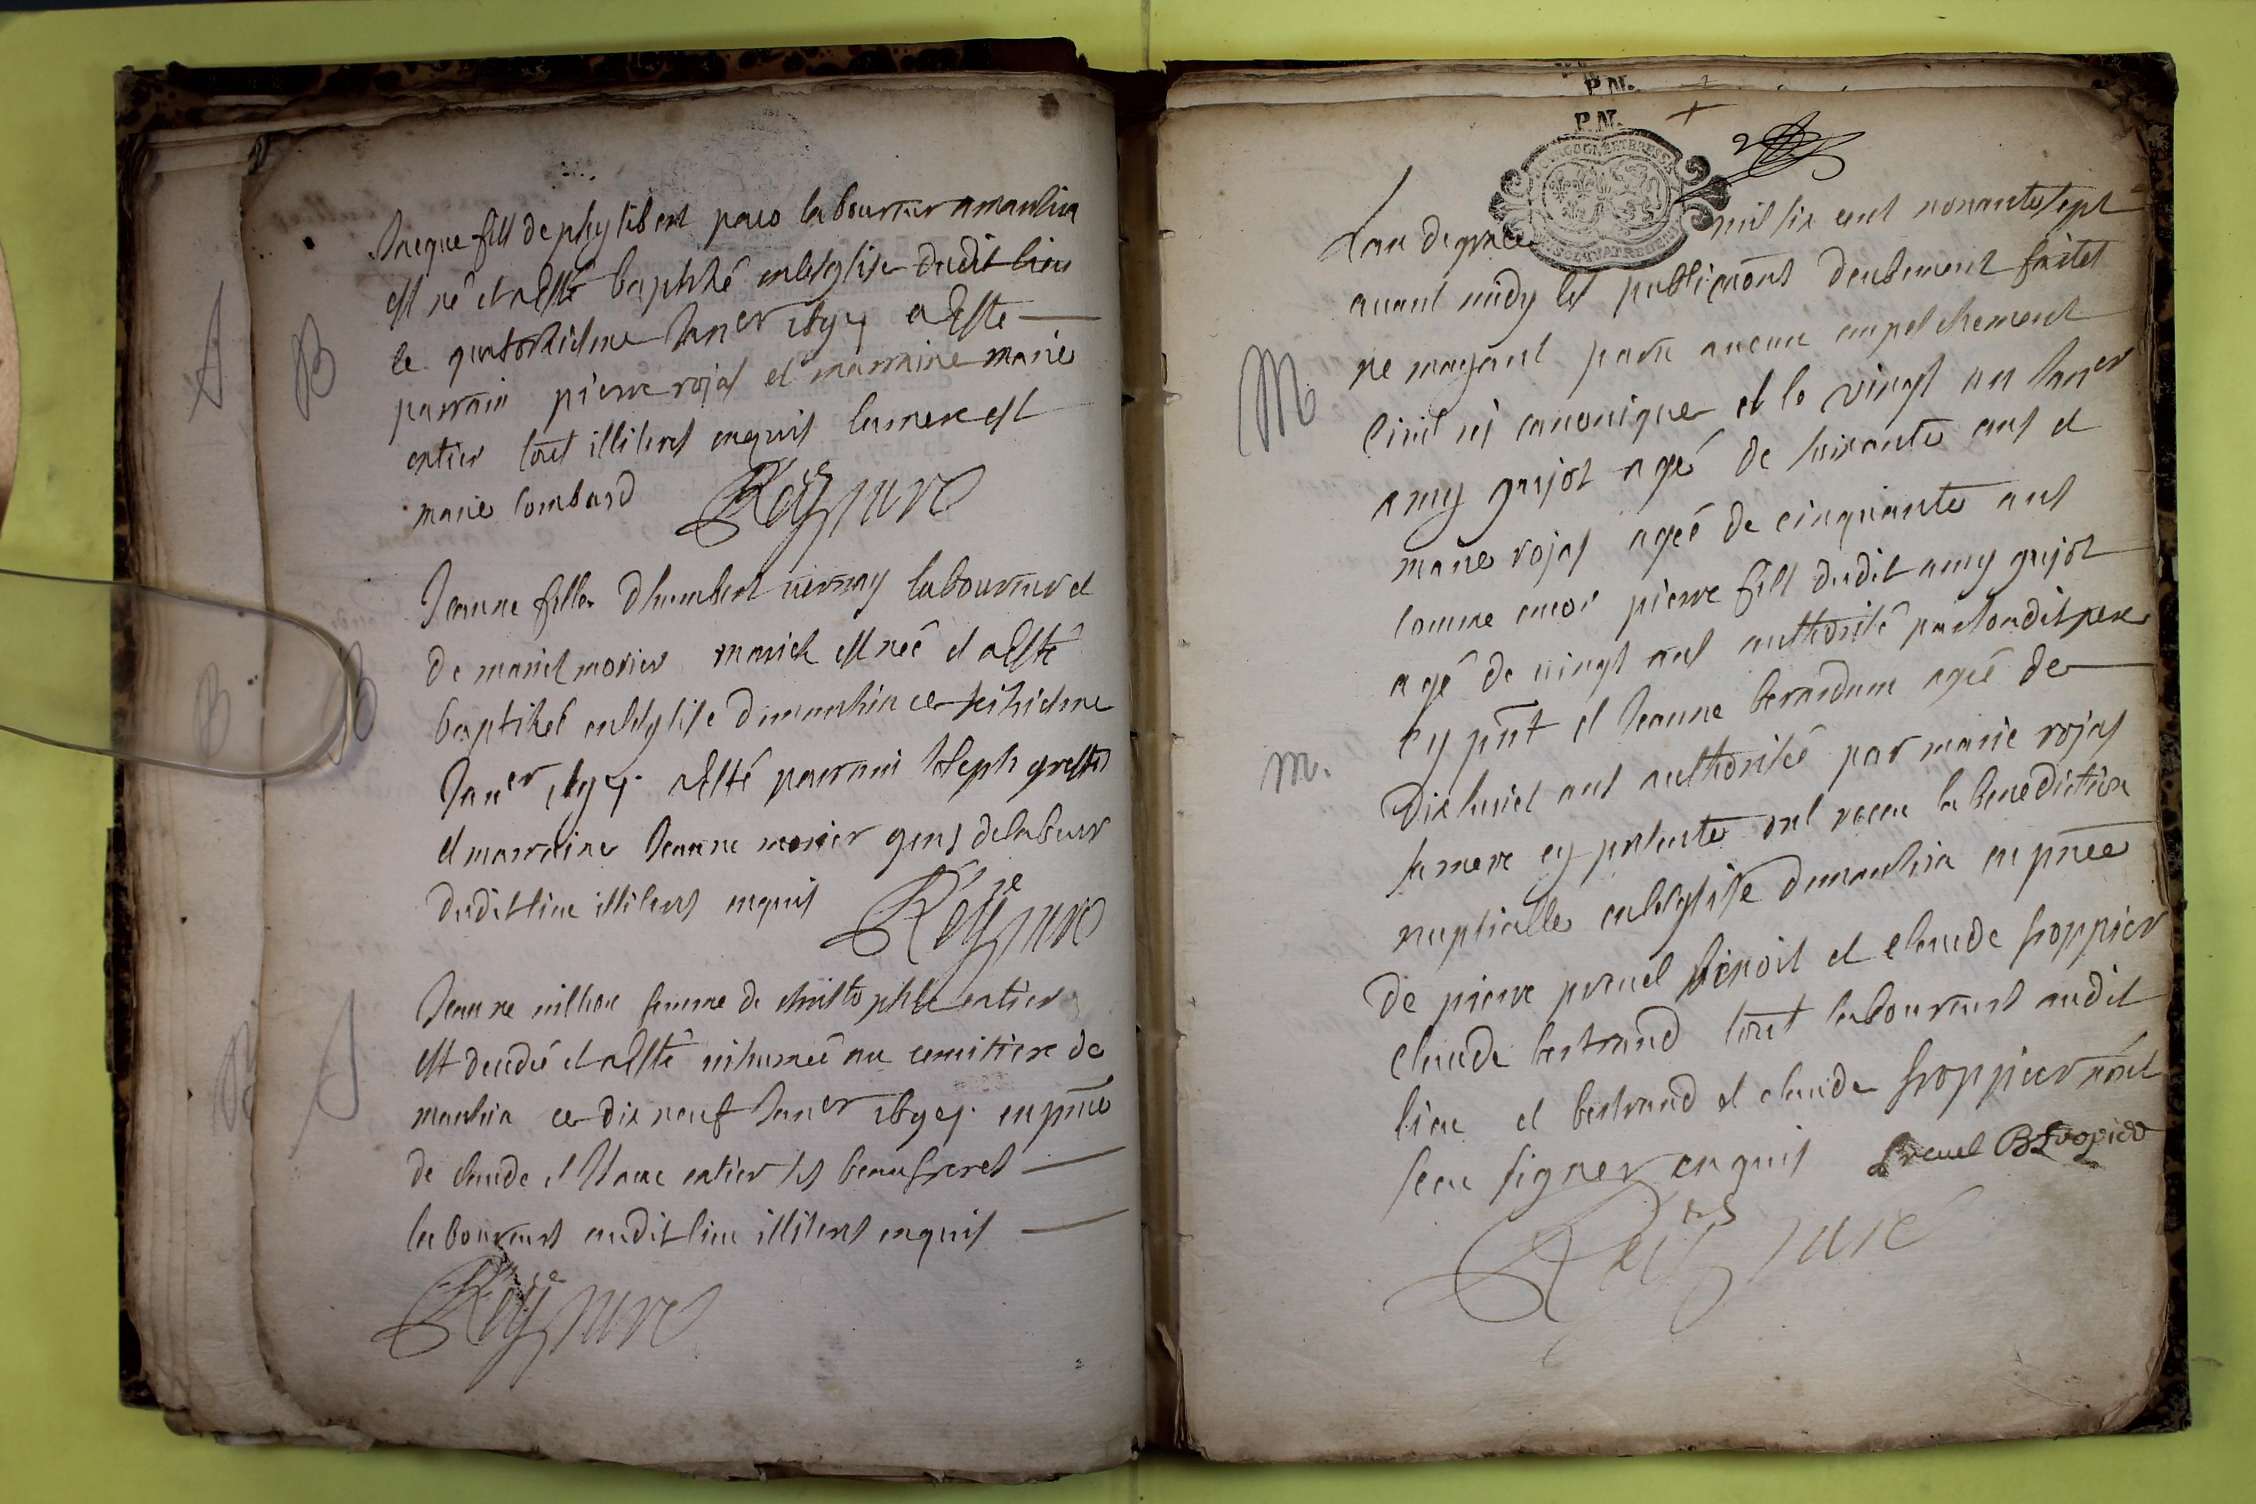 B
Jacque fils de phylibert paco laboureur amanhia
est né et a esté baptizé en lesglise dudit lieu
le quatorziesme Janer 1697 a esté
parrain pierre rojas et marraine marie
entier tous illiteres enquis la mere est
marie lombard
Rey curé
B
Jeanne fille dhumbert vernay laboureur et
de mariel morier mariez est neé et a esté
baptizeé en lesglise dumanhia ce seiziesme
Janer 1697 a esté parrain Joseph
et marraine Jeanne morier gens de labeur
dudit lieu illiteres enquis
Rey curé
S
Jeanne femme de christophle entier
est decedeé et a esté inhumeé au cemitiere de
manhia ce dix neuf Janer 1697 en pnce
de claude et entier ses beaufreres
laboureurs audit lieu illiteres enquis
Rey curé
P.N.
P.N.
BOURGOGNE ET BRESSE
Lan de grace mil six cent nonante sept
avant midy les publicaõns deubement faites
M
ne mayant paru aucun empeschement
civil ni canonique et le vingt un Janer
amy gujot agé de soixante ans et
marie rojas ageé de cinquante ans
comme encor pierre fils dudit amy gujot
agé de vingt ans authorisé par sondit pere
cy pnt et Jeanne berardune ageé de
m.
dix huict ans authoriseé par marie rojas
sa mere cy presente ont receu la benediction
nuptialle en lesglise dumanhia en pnce
de pierre pravel benoit et claude froppier
claude bertrand tous laboureurs audit
lieu et bertrand et claude froppier nont
sceu signer enquis Pravel B fropier
Rey curé